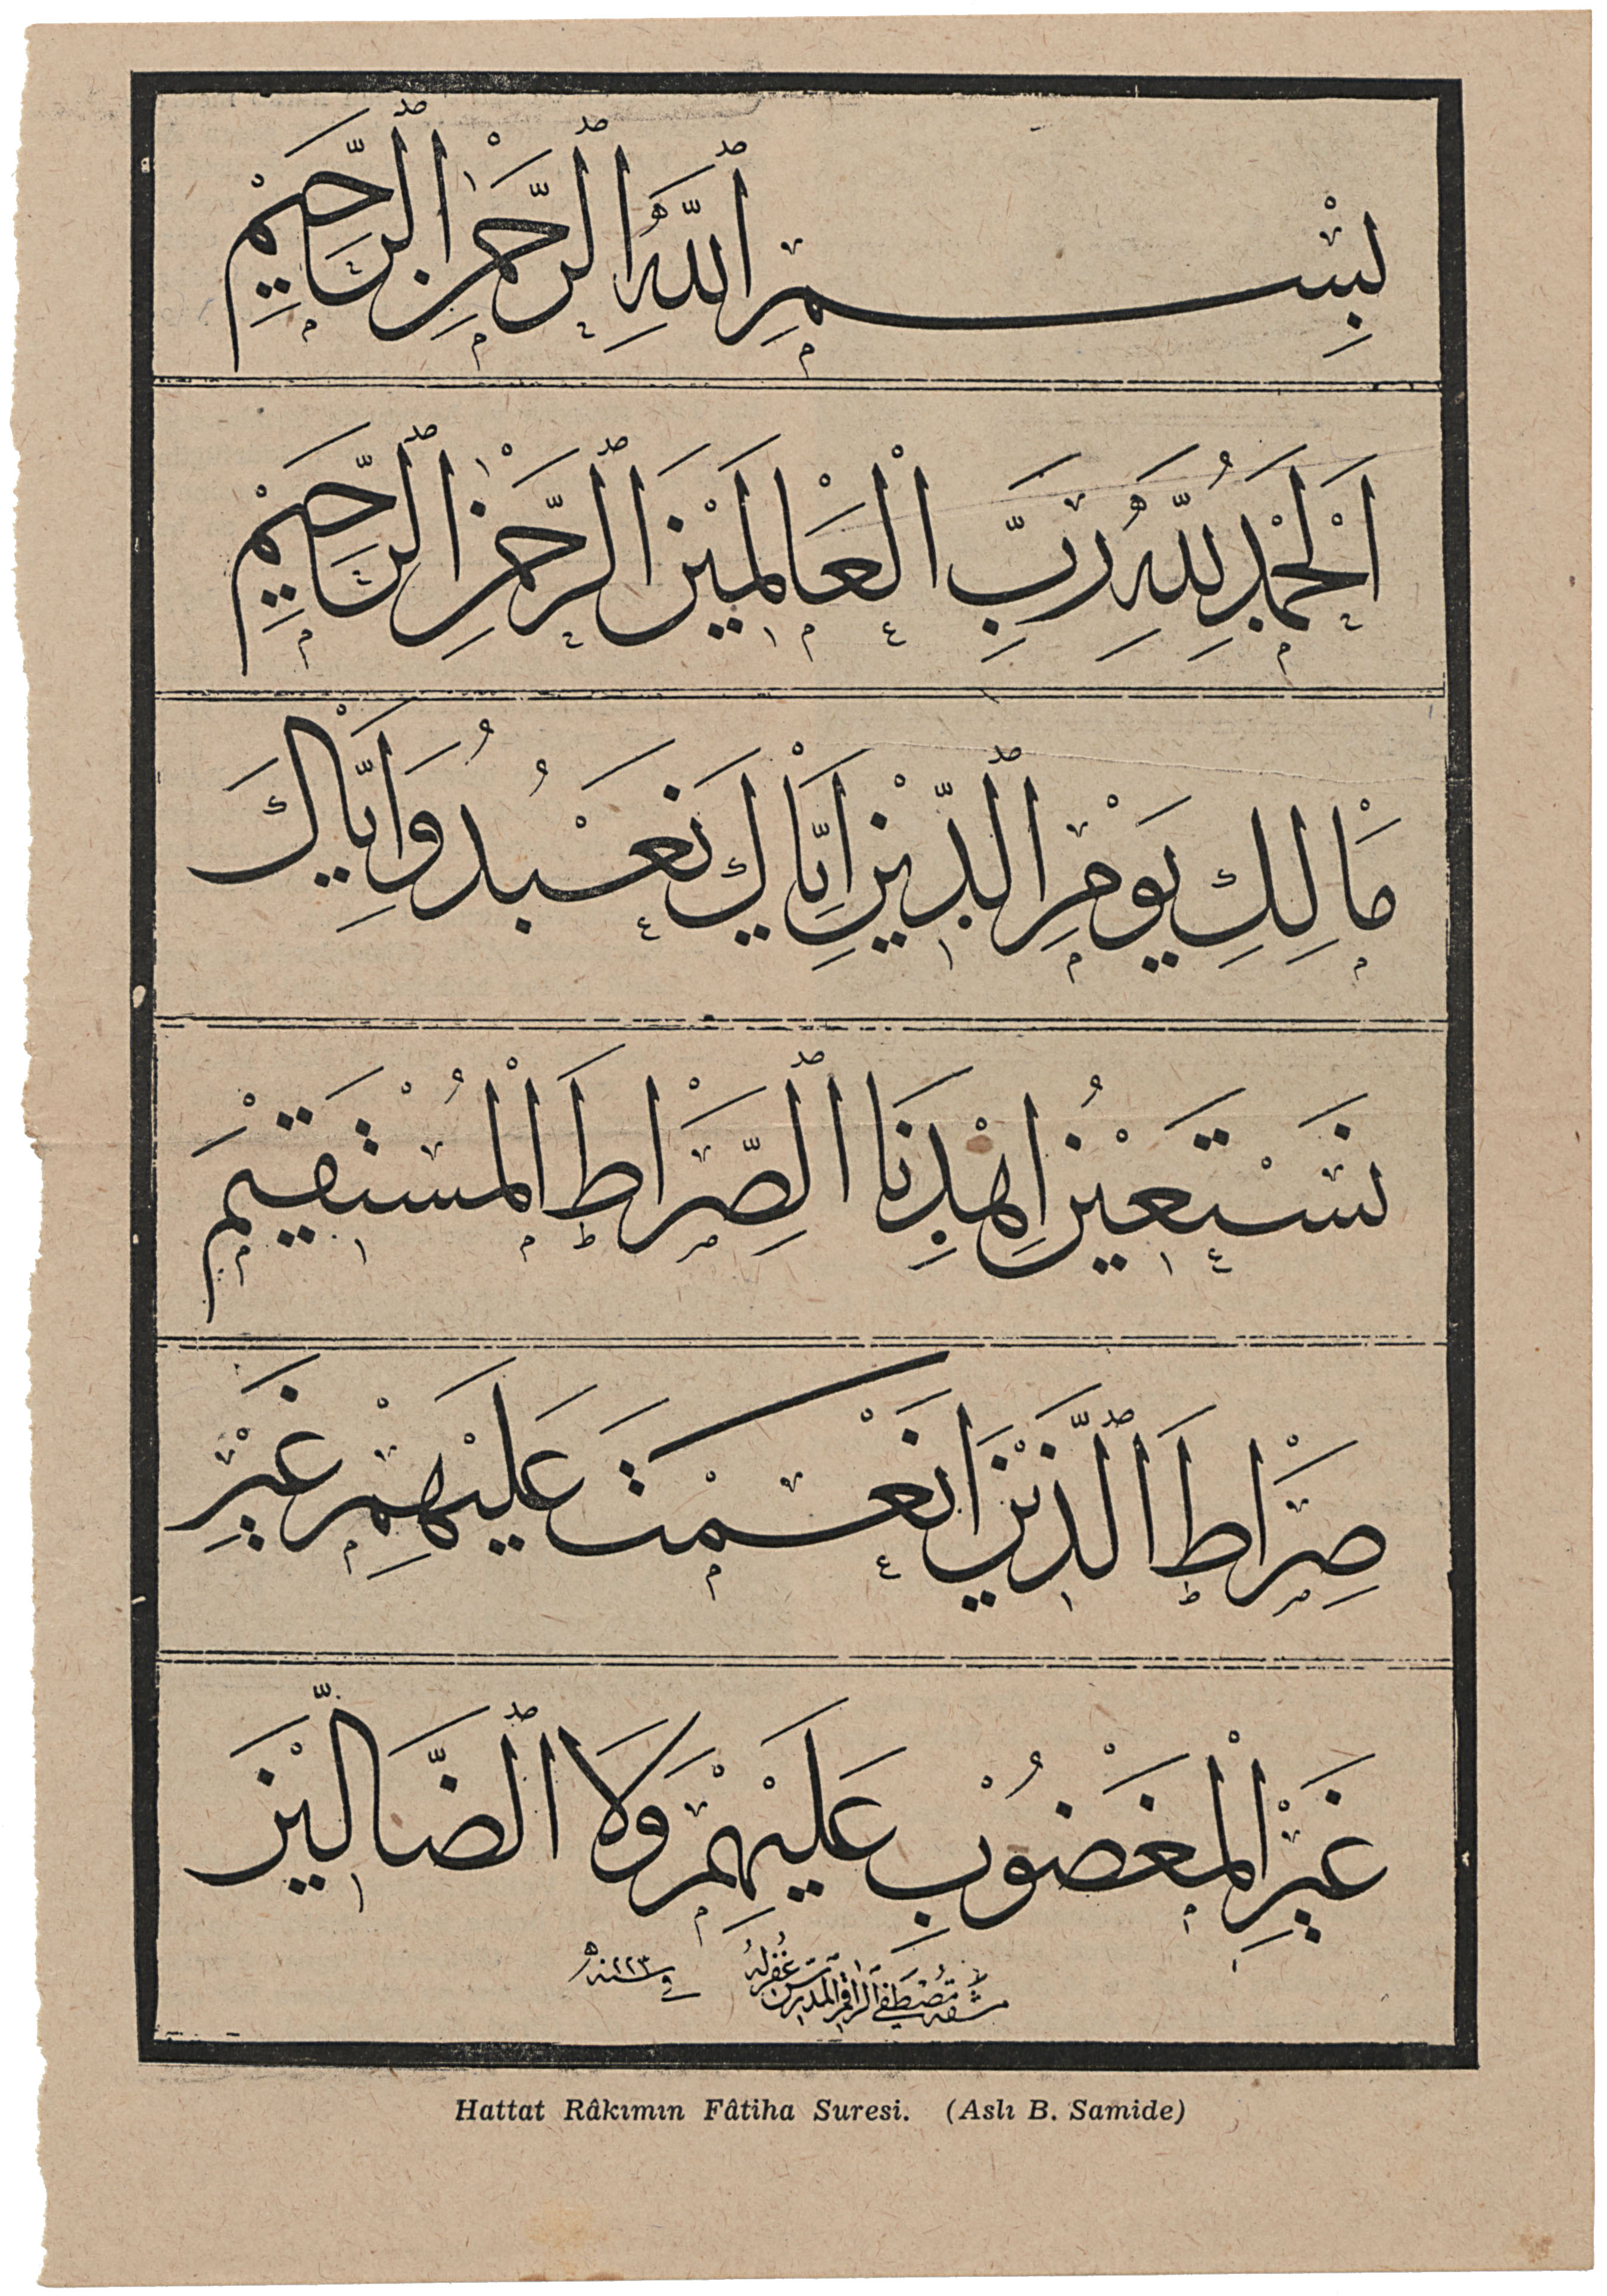 بِسْمِ ٱللَّهِ ٱلرَّحْمٰنِ ٱلرَّحِيْمِ
اَلْحَمْدُ لِلَّهِ رَبِّ الْعَالَمِيْنَ الرَّحْمٰنِ ٱلرَّحِيْمِ
مَاْلِكِ يَوْمِ ٱلدِّيْنِ اِيَّاْكَ نَعْبُدُ وَاِيَّاْكَ
نَسْتَعِيْنُ اِهْدِنَا ٱلصِّرَاْطَ الْمُسْتَقِيْمَ
صِرَاْطَ ٱلَّذِيْنَ اَنْعَمْتَ عَلَيْهِمْ غَيْرِ
غَيْرِ الْمَغْضُوْبِ عَلَيْهِمْ وَلَا ٱلضَّالِّيْنَ
مشقه مصطفى الراقم المدرس غفر له في سنة ١٢٢٣
Hattat Râkımın Fâtiha Suresi. (Aslı B. Samide)